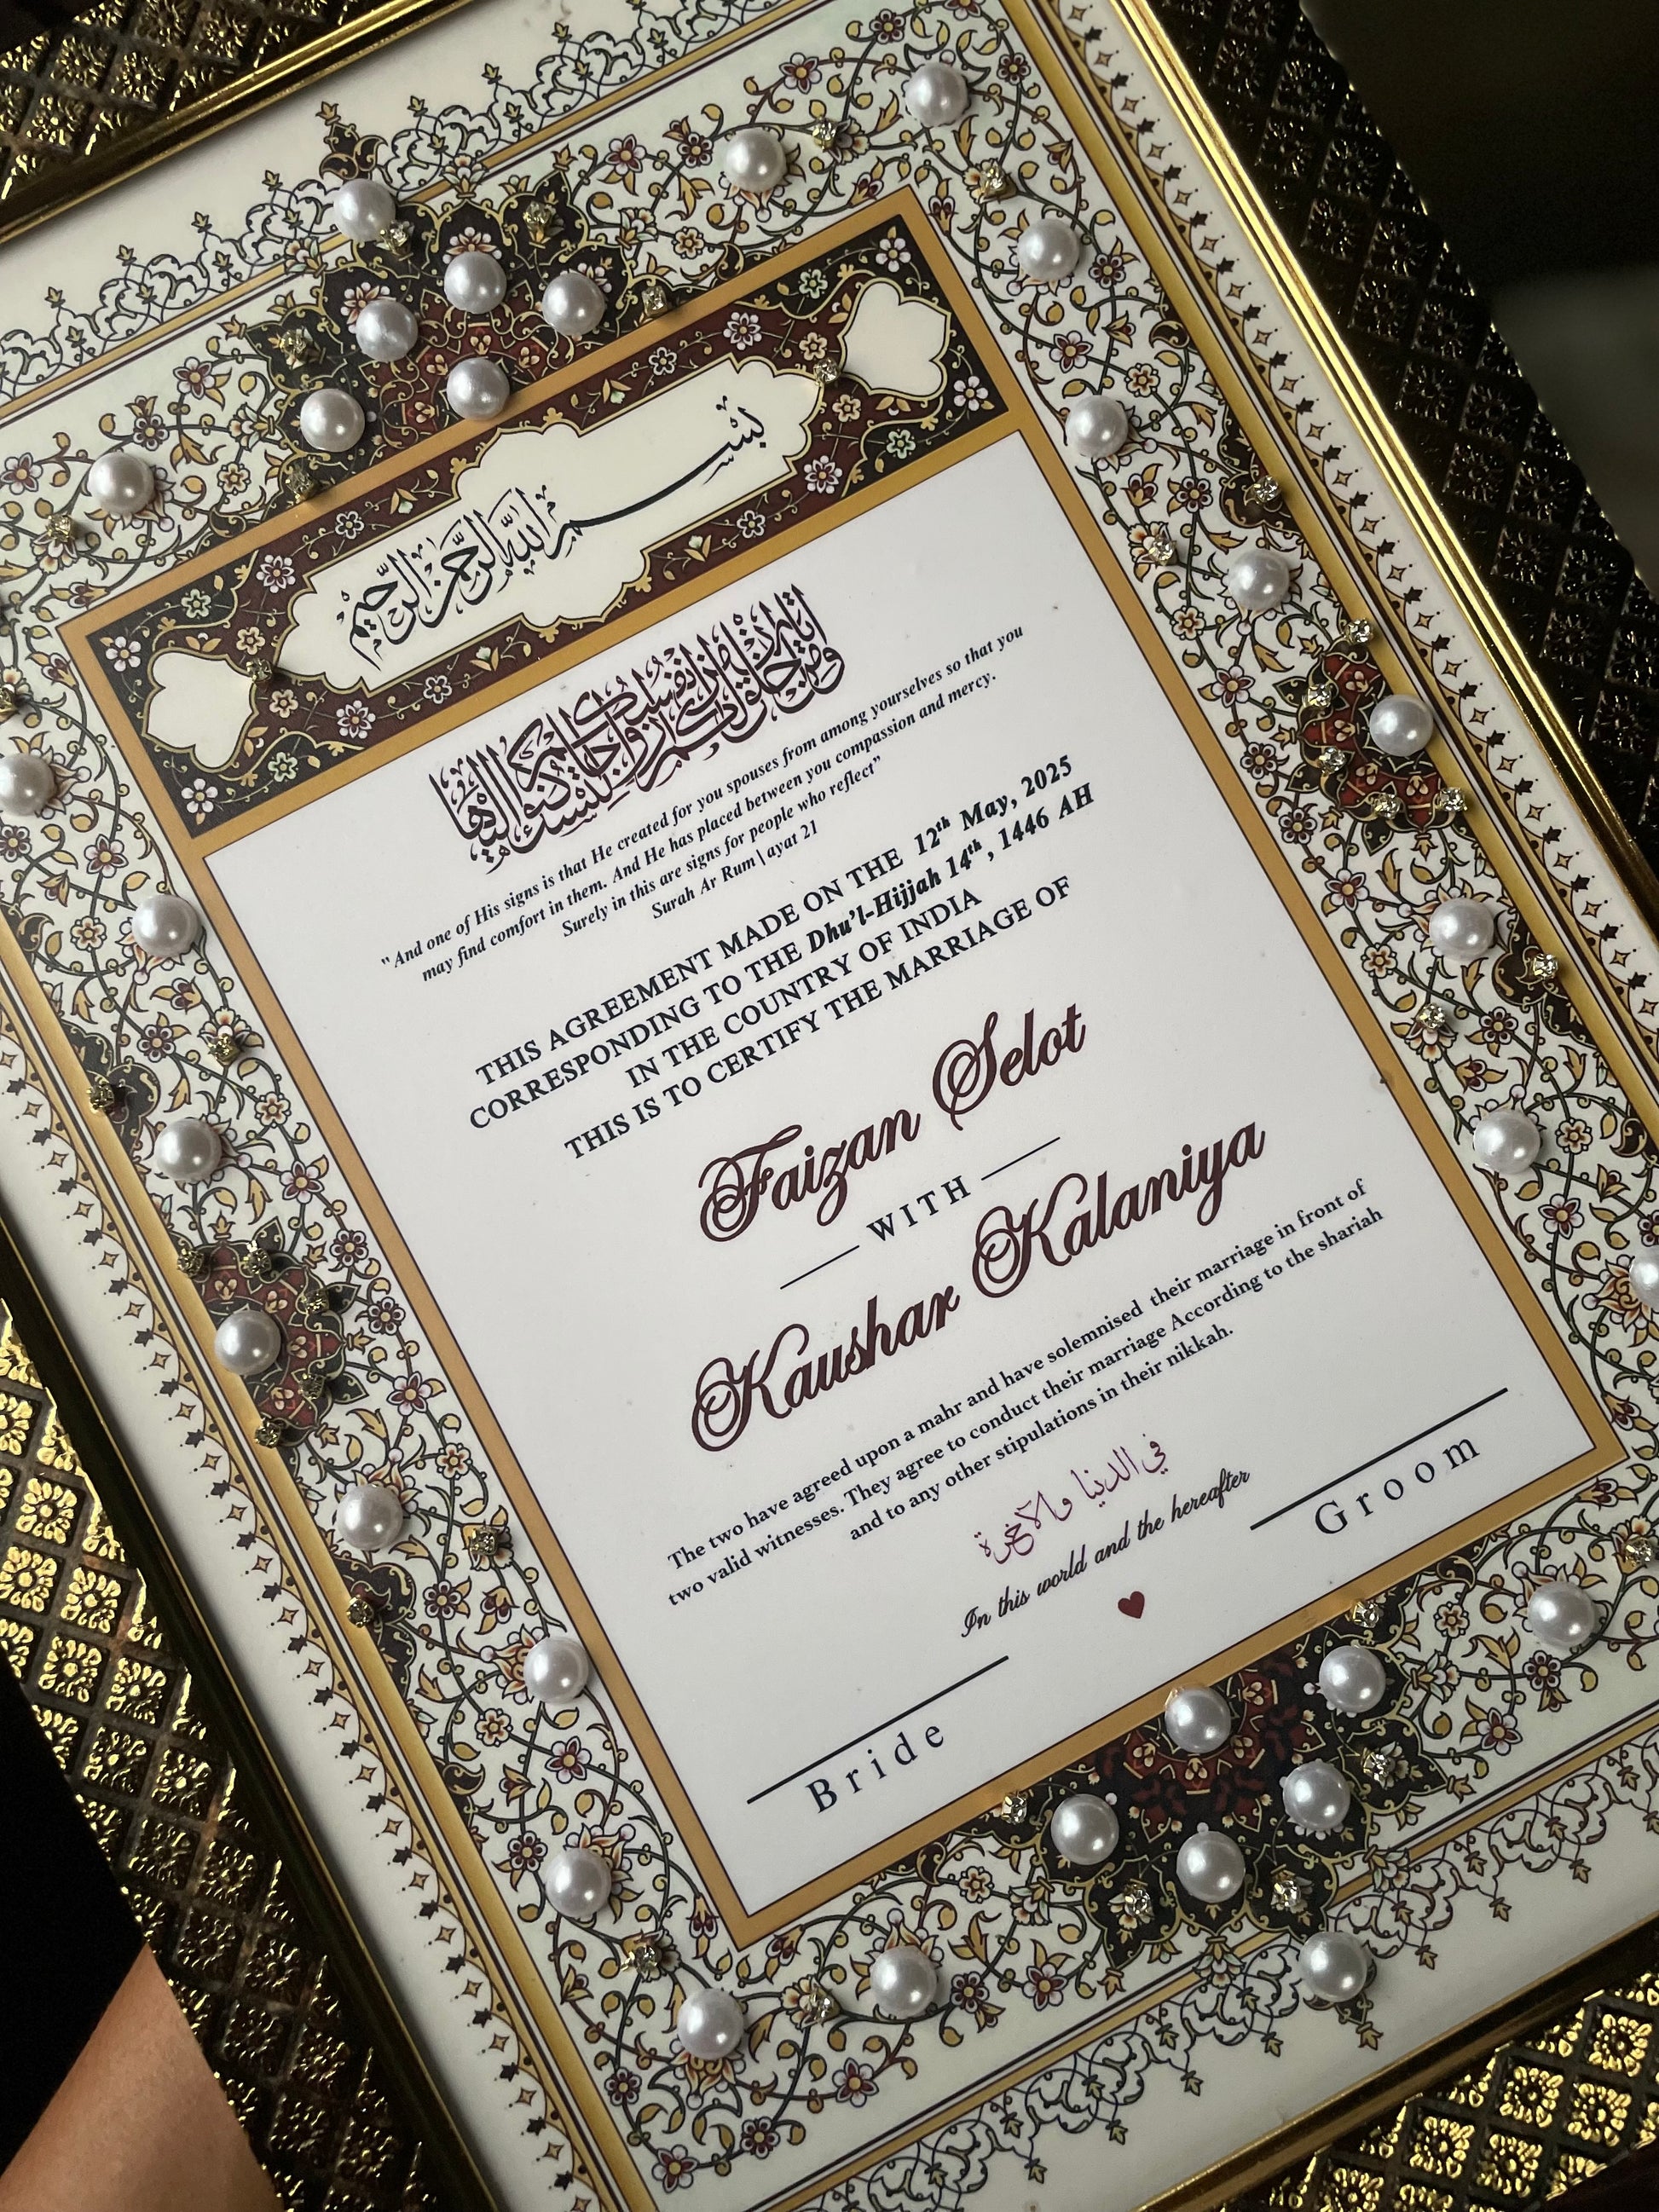 بسم الله الرحمن الرحيم
وَمِنْ آيَاتِهِ أَنْ خَلَقَ لَكُم مِّنْ أَنفُسِكُمْ أَزْوَاجًا لِّتَسْكُنُوا إِلَيْهَا
"And one of His signs is that He created for you spouses from among yourselves so that you
may find comfort in them. And He has placed between you compassion and mercy.
Surely in this are signs for people who reflect”
Surah Ar Rum\ayat 21
THIS AGREEMENT MADE ON THE 12th May, 2025
CORRESPONDING TO THE Dhu’l-Hijjah 14th, 1446 AH
IN THE COUNTRY OF INDIA
THIS IS TO CERTIFY THE MARRIAGE OF
Faizan Selot
WITH
Kaushar Kalaniya
The two have agreed upon a mahr and have solemnised their marriage in front of
two valid witnesses. They agree to conduct their marriage According to the shariah
and to any other stipulations in their nikkah.
في الدنيا والآخرة
In this world and the hereafter
Groom
Bride